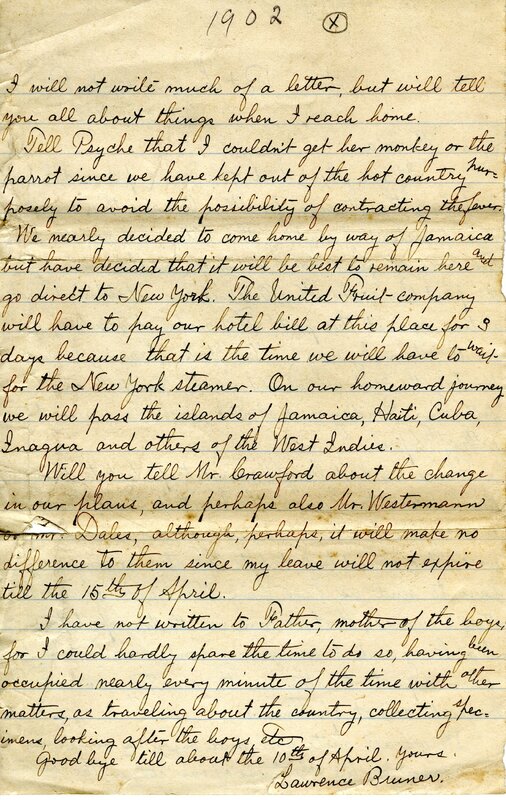 1902 X
I will not write much of a letter, but will tell
you all about things when I reach home.
Tell Psyche that I couldn't get her monkey or the
parrot since we have kept out of the hot country pur-
posely to avoid the possibility of contracting the fever.
We nearly decided to come home by way of Jamaica
but have decided that it will be best to remain here and
go direct to New York. The United Fruit company
will have to pay our hotel bill at this place for 3
days because that is the time we will have to wait
for the New York steamer. On our homeward journey
we will pass the islands of Jamaica, Haiti, Cuba,
Inagua and others of the West Indies.
Will you tell Mr. Crawford about the change
in our plans, and perhaps also Mr. Westermann
or Mr. Dales, although, perhaps, it will make no
difference to them since my leave will not expire
till the 15th of April.
I have not written to Father, mother of the boys,
for I could hardly spare the time to do so, having been
occupied nearly every minute of the time with other
matters, as traveling about the country, collecting spec-
imens, looking after the boys etc
Good bye till about the 10th of April. Yours.
Lawrence Bruner.